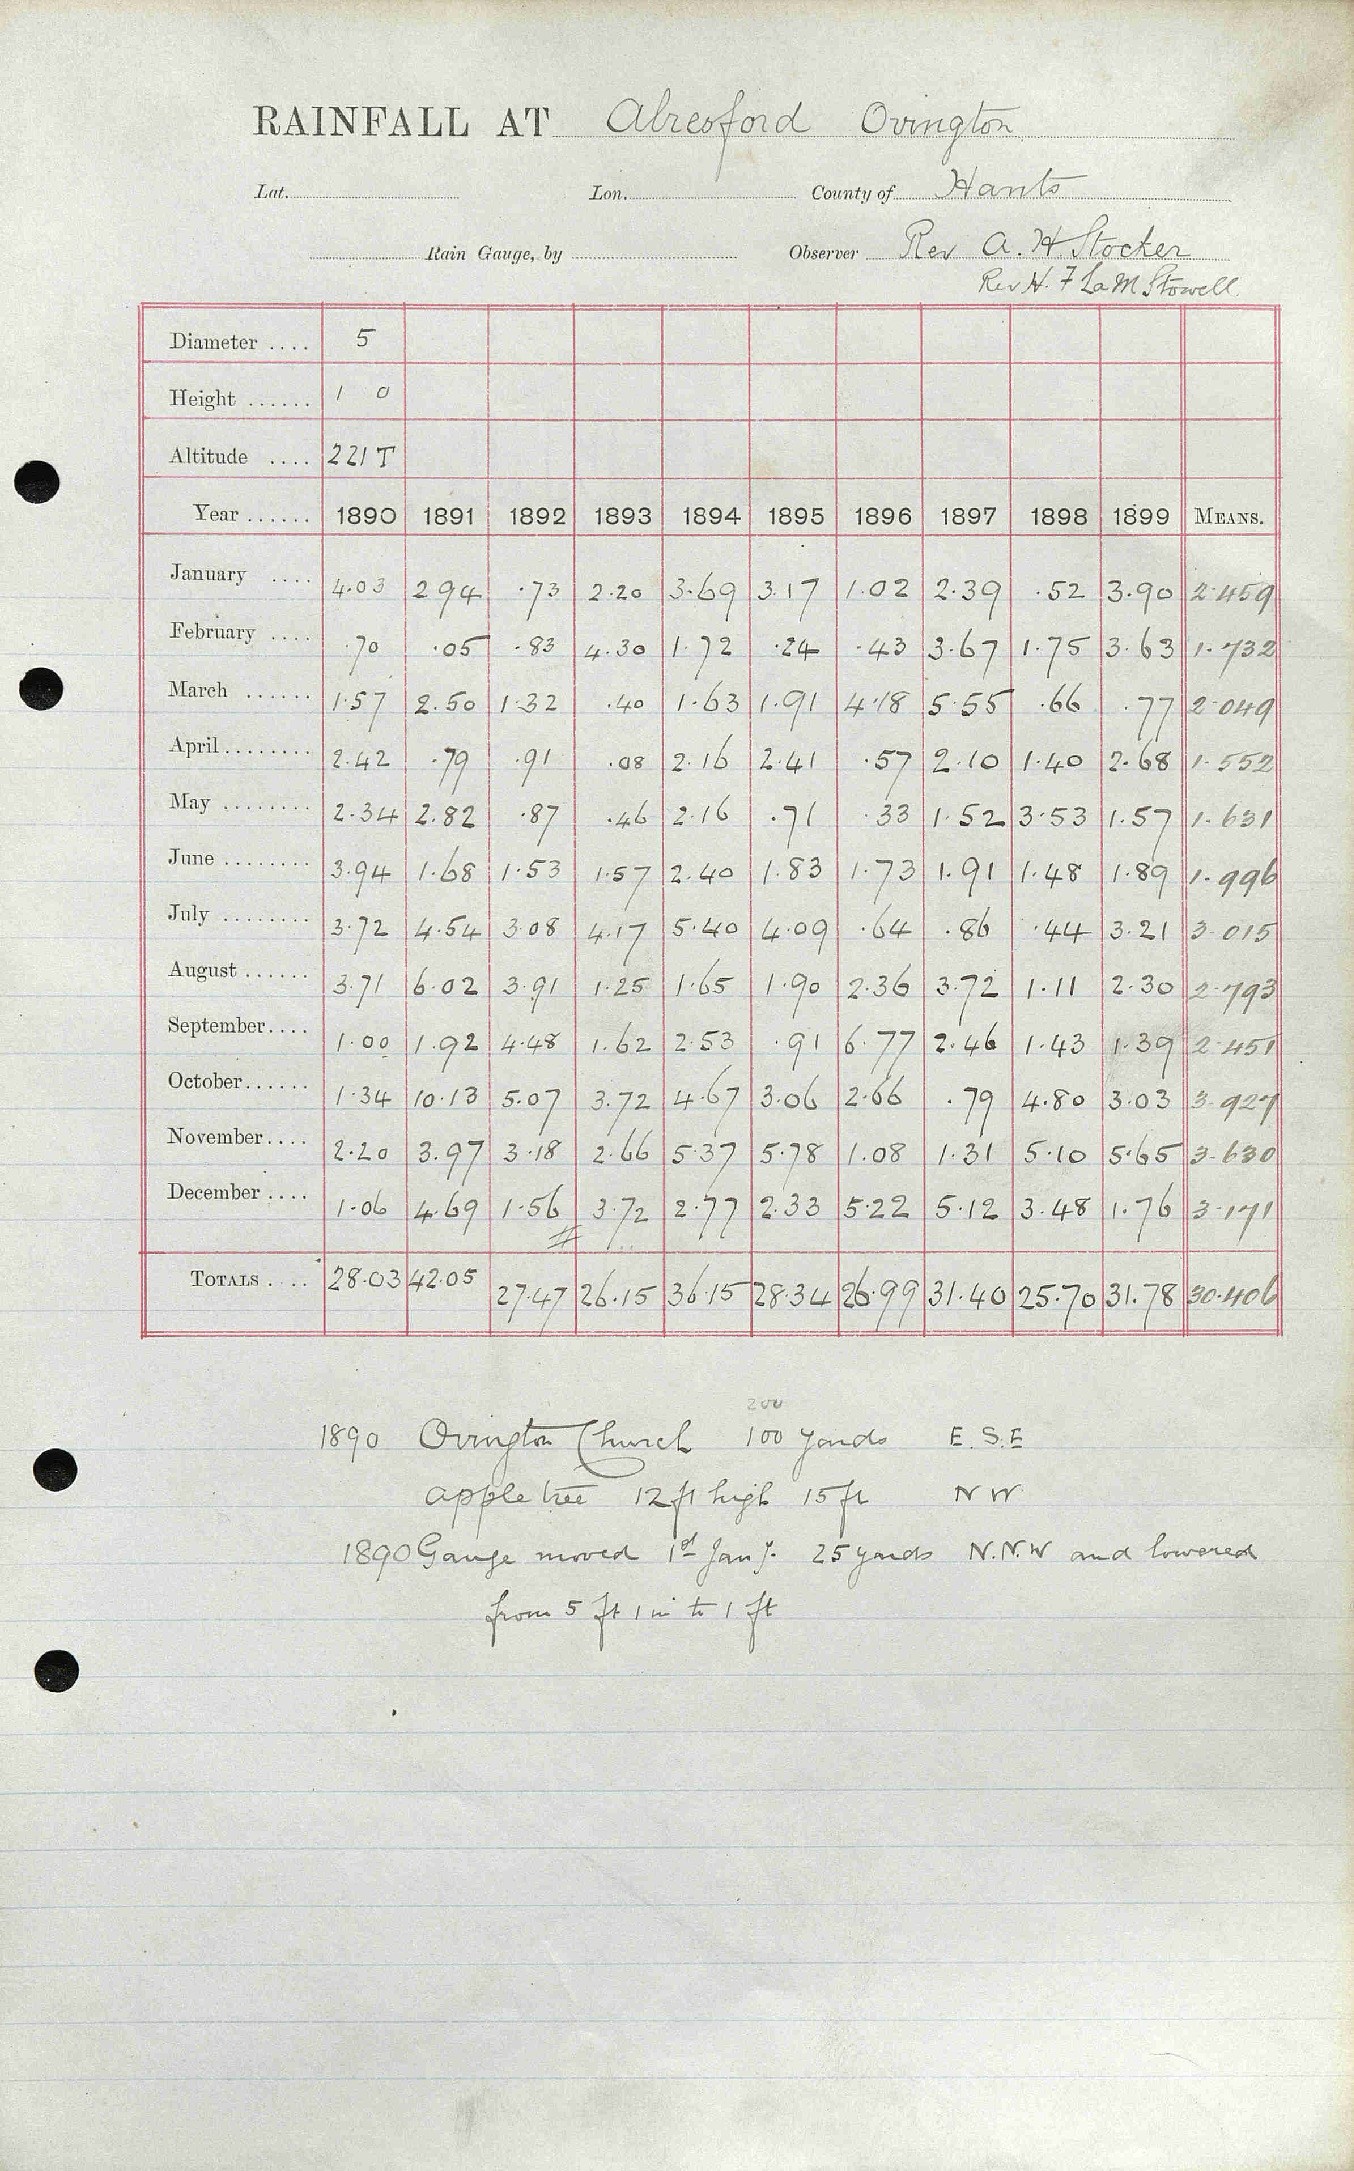 RAINFALL AT Alresford Ovington
Lat. Lon. County of Hants
Rain Gauge, by Observer Rev A. H Stocker
Rev H. F La M Stowell
Diameter .... 5
Height ...... 1 0
Altitude .... 221 T
Year ...... 1890 1891 1892 1893 1894 1895 1896 1897 1898 1899 MEANS.
January .... 4.03 2.94 .73 2.20 3.69 3.17 1.02 2.39 .52 3.90 2.459
February .... .70 .05 .83 4.30 1.72 .24 .43 3.67 1.75 3.63 1.732
March ...... 1.57 2.50 1.32 .40 1.63 1.91 4.18 5.55 .66 .77 2.049
April ........ 2.42 .79 .91 .08 2.16 2.41 .57 2.10 1.40 2.68 1.552
May ........ 2.34 2.82 .87 .46 2.16 .71 .33 1.52 3.53 1.57 1.631
June ........ 3.94 1.68 1.53 1.57 2.40 1.83 1.73 1.91 1.48 1.89 1.996
July ........ 3.72 4.54 3.08 4.17 5.40 4.09 .64 .86 .44 3.21 3.015
August ...... 3.71 6.02 3.91 1.25 1.65 1.90 2.36 3.72 1.11 2.30 2.793
September .... 1.00 1.92 4.48 1.62 2.53 .91 6.77 2.46 1.43 1.39 2.451
October ...... 1.34 10.13 5.07 3.72 4.67 3.06 2.66 .79 4.80 3.03 3.927
November .... 2.20 3.97 3.18 2.66 5.37 5.78 1.08 1.31 5.10 5.65 3.630
December .... 1.06 4.69 1.56 3.72 2.77 2.33 5.22 5.12 3.48 1.76 3.171
TOTALS .... 28.03 42.05 27.47 26.15 36.15 28.34 26.99 31.40 25.70 31.78 30.406
200
1890 Ovington Church 100 yards E. S. E
apple tree 12 ft high 15 ft N W
1890 Gauge moved 1st Jany. 25 yards N.N.W and lowered
from 5 ft 1 in to 1 ft